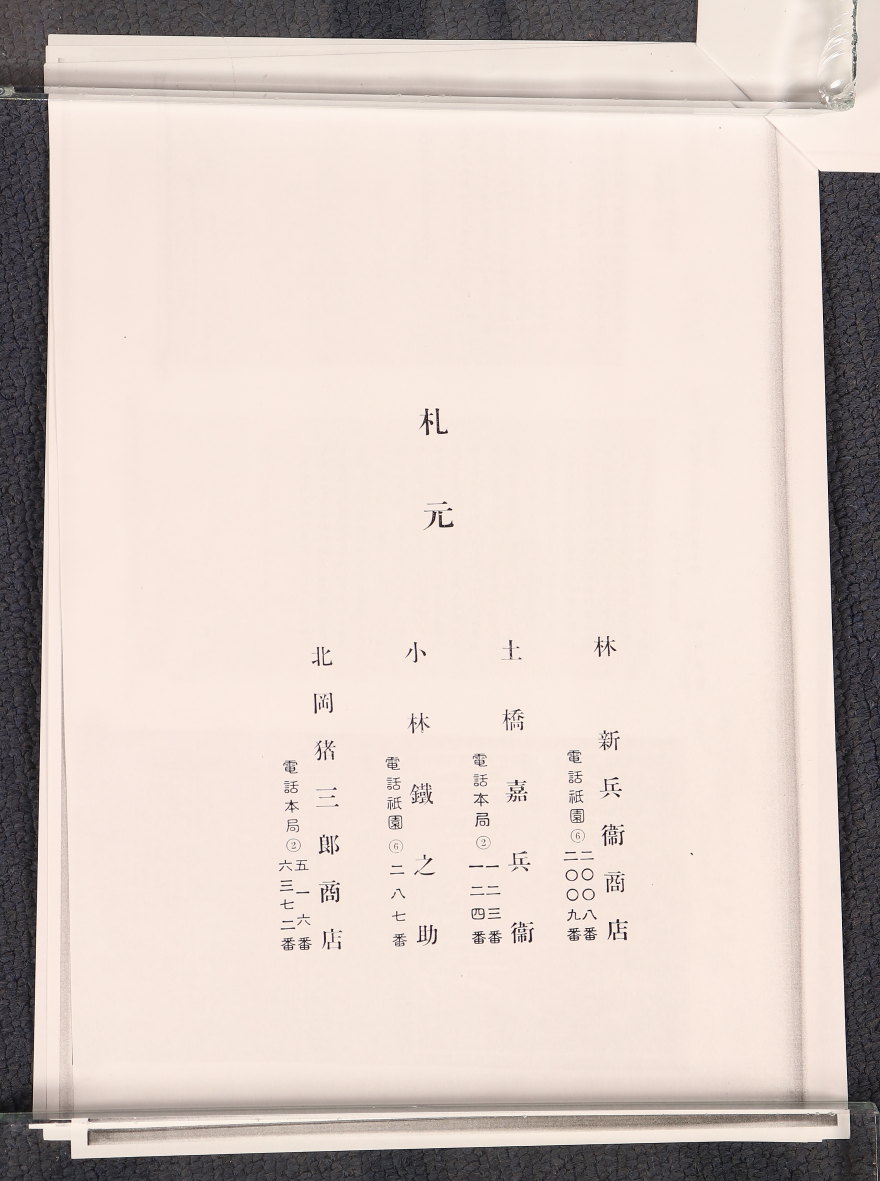 札元
林新兵衞商店
電話祇園⑥二〇〇八番
二〇〇九番
土橋嘉兵衞
電話本局②一二三番
一二四番
小林鐵之助
電話祇園⑥二八七番
北岡猪三郎商店
電話本局②五一六番
六三七二番